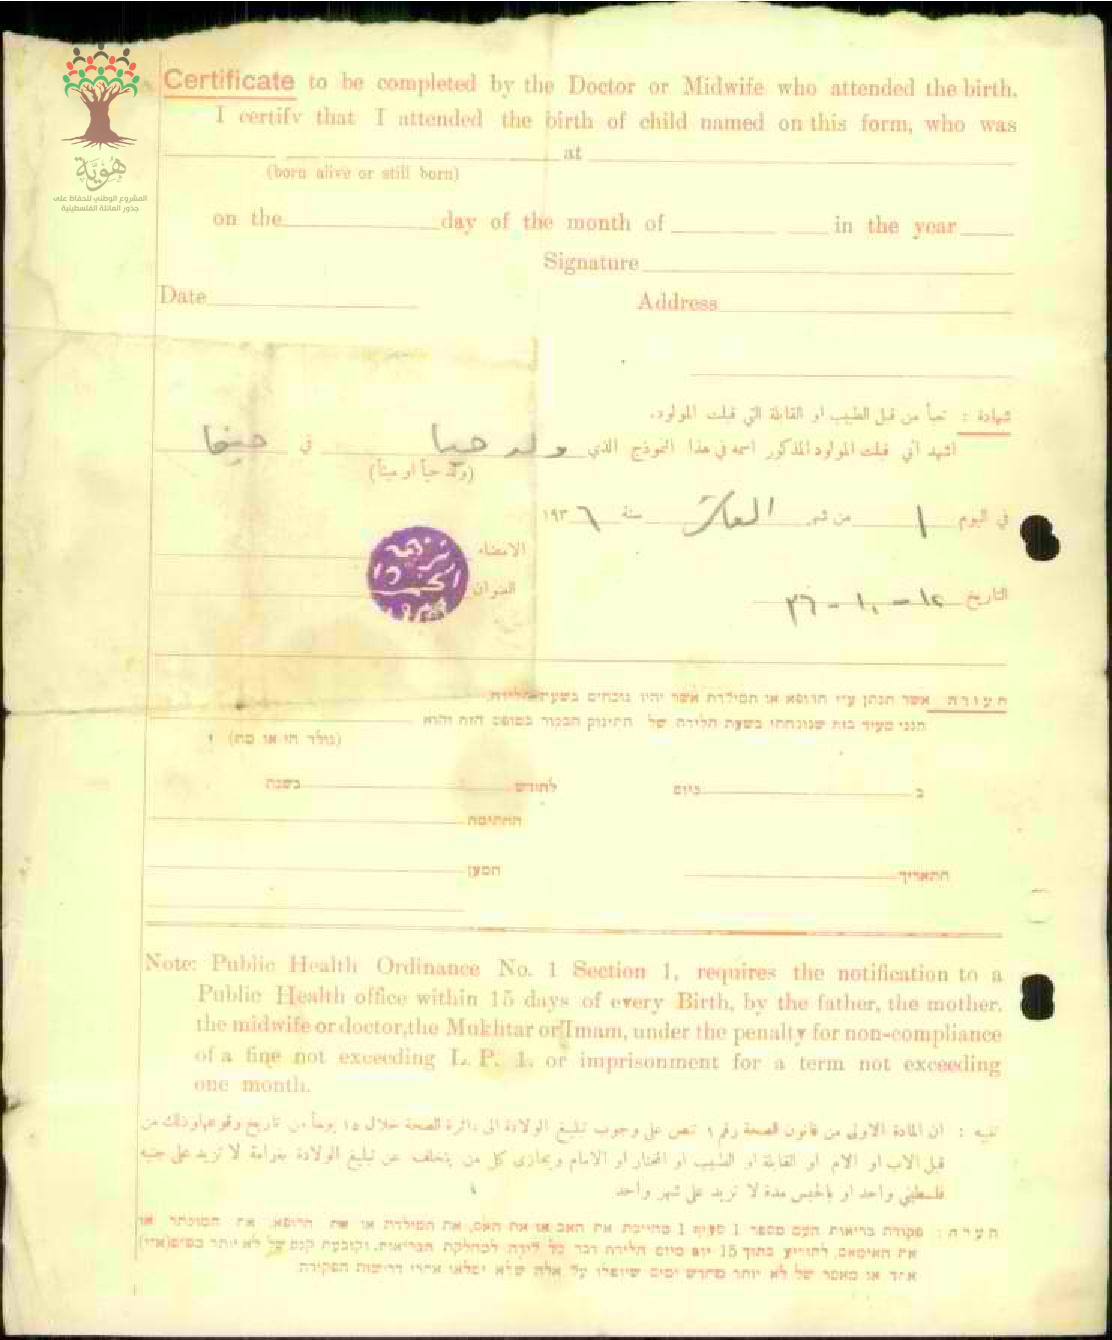 هُوِيَّة
المشروع الوطني للحفاظ على
جذور العائلة الفلسطينية
Certificate to be completed by the Doctor or Midwife who attended the birth.
I certify that I attended the birth of child named on this form, who was
at
(born alive or still born)
on the day of the month of in the year
Signature
Date Address
شهادة : تعبأ من قبل الطبيب او القابلة التي قبلت المولود.
اشهد اني قبلت المولود المذكور اسمه في هذا النموذج الذي ولد حيا في حيفا
(ولد حياً او ميتاً)
في اليوم ١ من شهر العاشر سنة ١٩٣٦
الامضاء
العنوان
التاريخ ١٢-١٠-٣٦
תעודה אשר תנתן ע״י הרופא או המילדת אשר יהיו נוכחים בשעת הלידה.
הנני מעיד בזה שנוכחתי בשעת הלידה של התינוק הנזכר בטופס הזה והוא
(נולד חי או מת)
ב ביום לחודש בשנת
החתימה
התאריך המען
Note: Public Health Ordinance No. 1 Section 1, requires the notification to a
Public Health office within 15 days of every Birth, by the father, the mother,
the midwife or doctor, the Mukhtar or Imam, under the penalty for non-compliance
of a fine not exceeding L. P. 1. or imprisonment for a term not exceeding
one month.
تنبيه : ان المادة الاولى من قانون الصحة رقم ١ تنص على وجوب تبليغ الولادة الى دائرة الصحة خلال ١٥ يوماً من تاريخ وقوعها وذلك من
قبل الاب او الام او القابلة او الطبيب او المختار او الامام ويجازى كل من يتخلف عن تبليغ الولادة بغرامة لا تزيد على جنيه
فلسطيني واحد او بالحبس مدة لا تزيد على شهر واحد
הערה : פקודת בריאות העם מספר 1 סעיף 1 מחייבת את האב או את האם, את המילדת או את הרופא, את המוכתר או
את האימאם, להודיע בתוך 15 יום מיום הלידה דבר כל לידה למחלקת הבריאות, וקובעת קנס של לא יותר
אחד או מאסר של לא יותר מחדש ימים שיוטלו על אלה שלא ימלאו אחרי דרישות הפקודה.